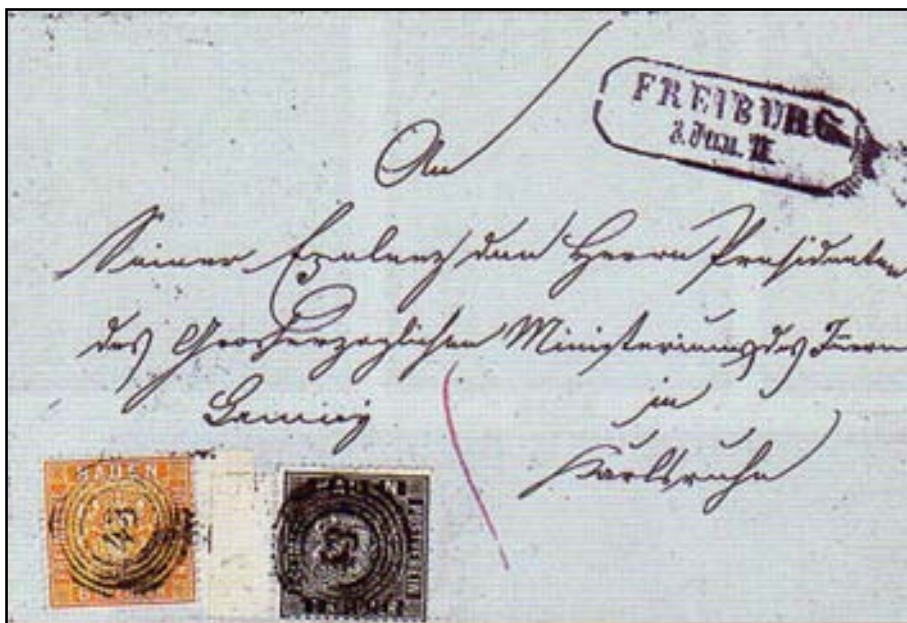 FREIBURG
3 Jun. II
An
Seiner Exzlenz dem Herrn Präsidenten
des Grosherzoglichen Ministeriums des Innern
in
Karlsruhe
BADEN
43
BADEN
43